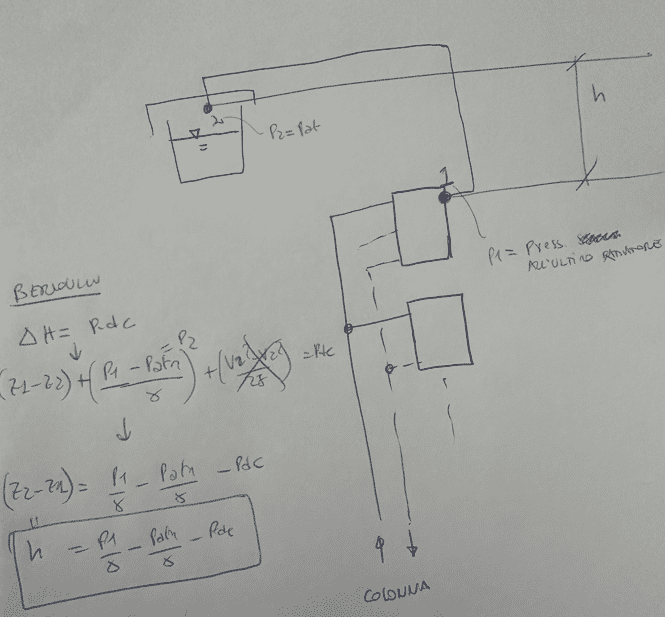 2
P2 = Pat
h
1
P1 = Press.
ALL'ULTIMO RADIATORE
BERNOULLI
ΔH = Pdc
= P2
(Z1-Z2) + (P1 - Patm / γ) + (V1² - V2² / 2g) = Pdc
(Z2-Z1) = P1/γ - Patm/γ - Pdc
h = P1/γ - Patm/γ - Pdc
COLONNA